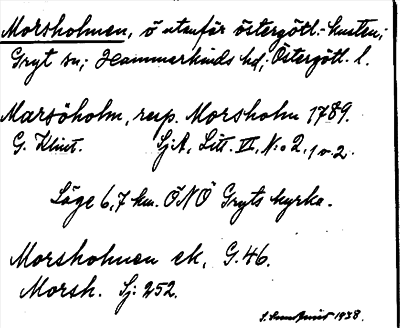 Morsholmen, ö utanför östergötl. kusten;
Gryt sn; Hammarkinds hd; Östergötl. l.
Marsöholm, resp. Morsholm 1789.
G. Klint. SjA, Litt. VI, N:o 2, 1 o 2.
Läge 6,7 km. ÖNÖ Gryts kyrka.
Morsholmen ek. G. 46.
Morsh. Sj: 252.
1938.